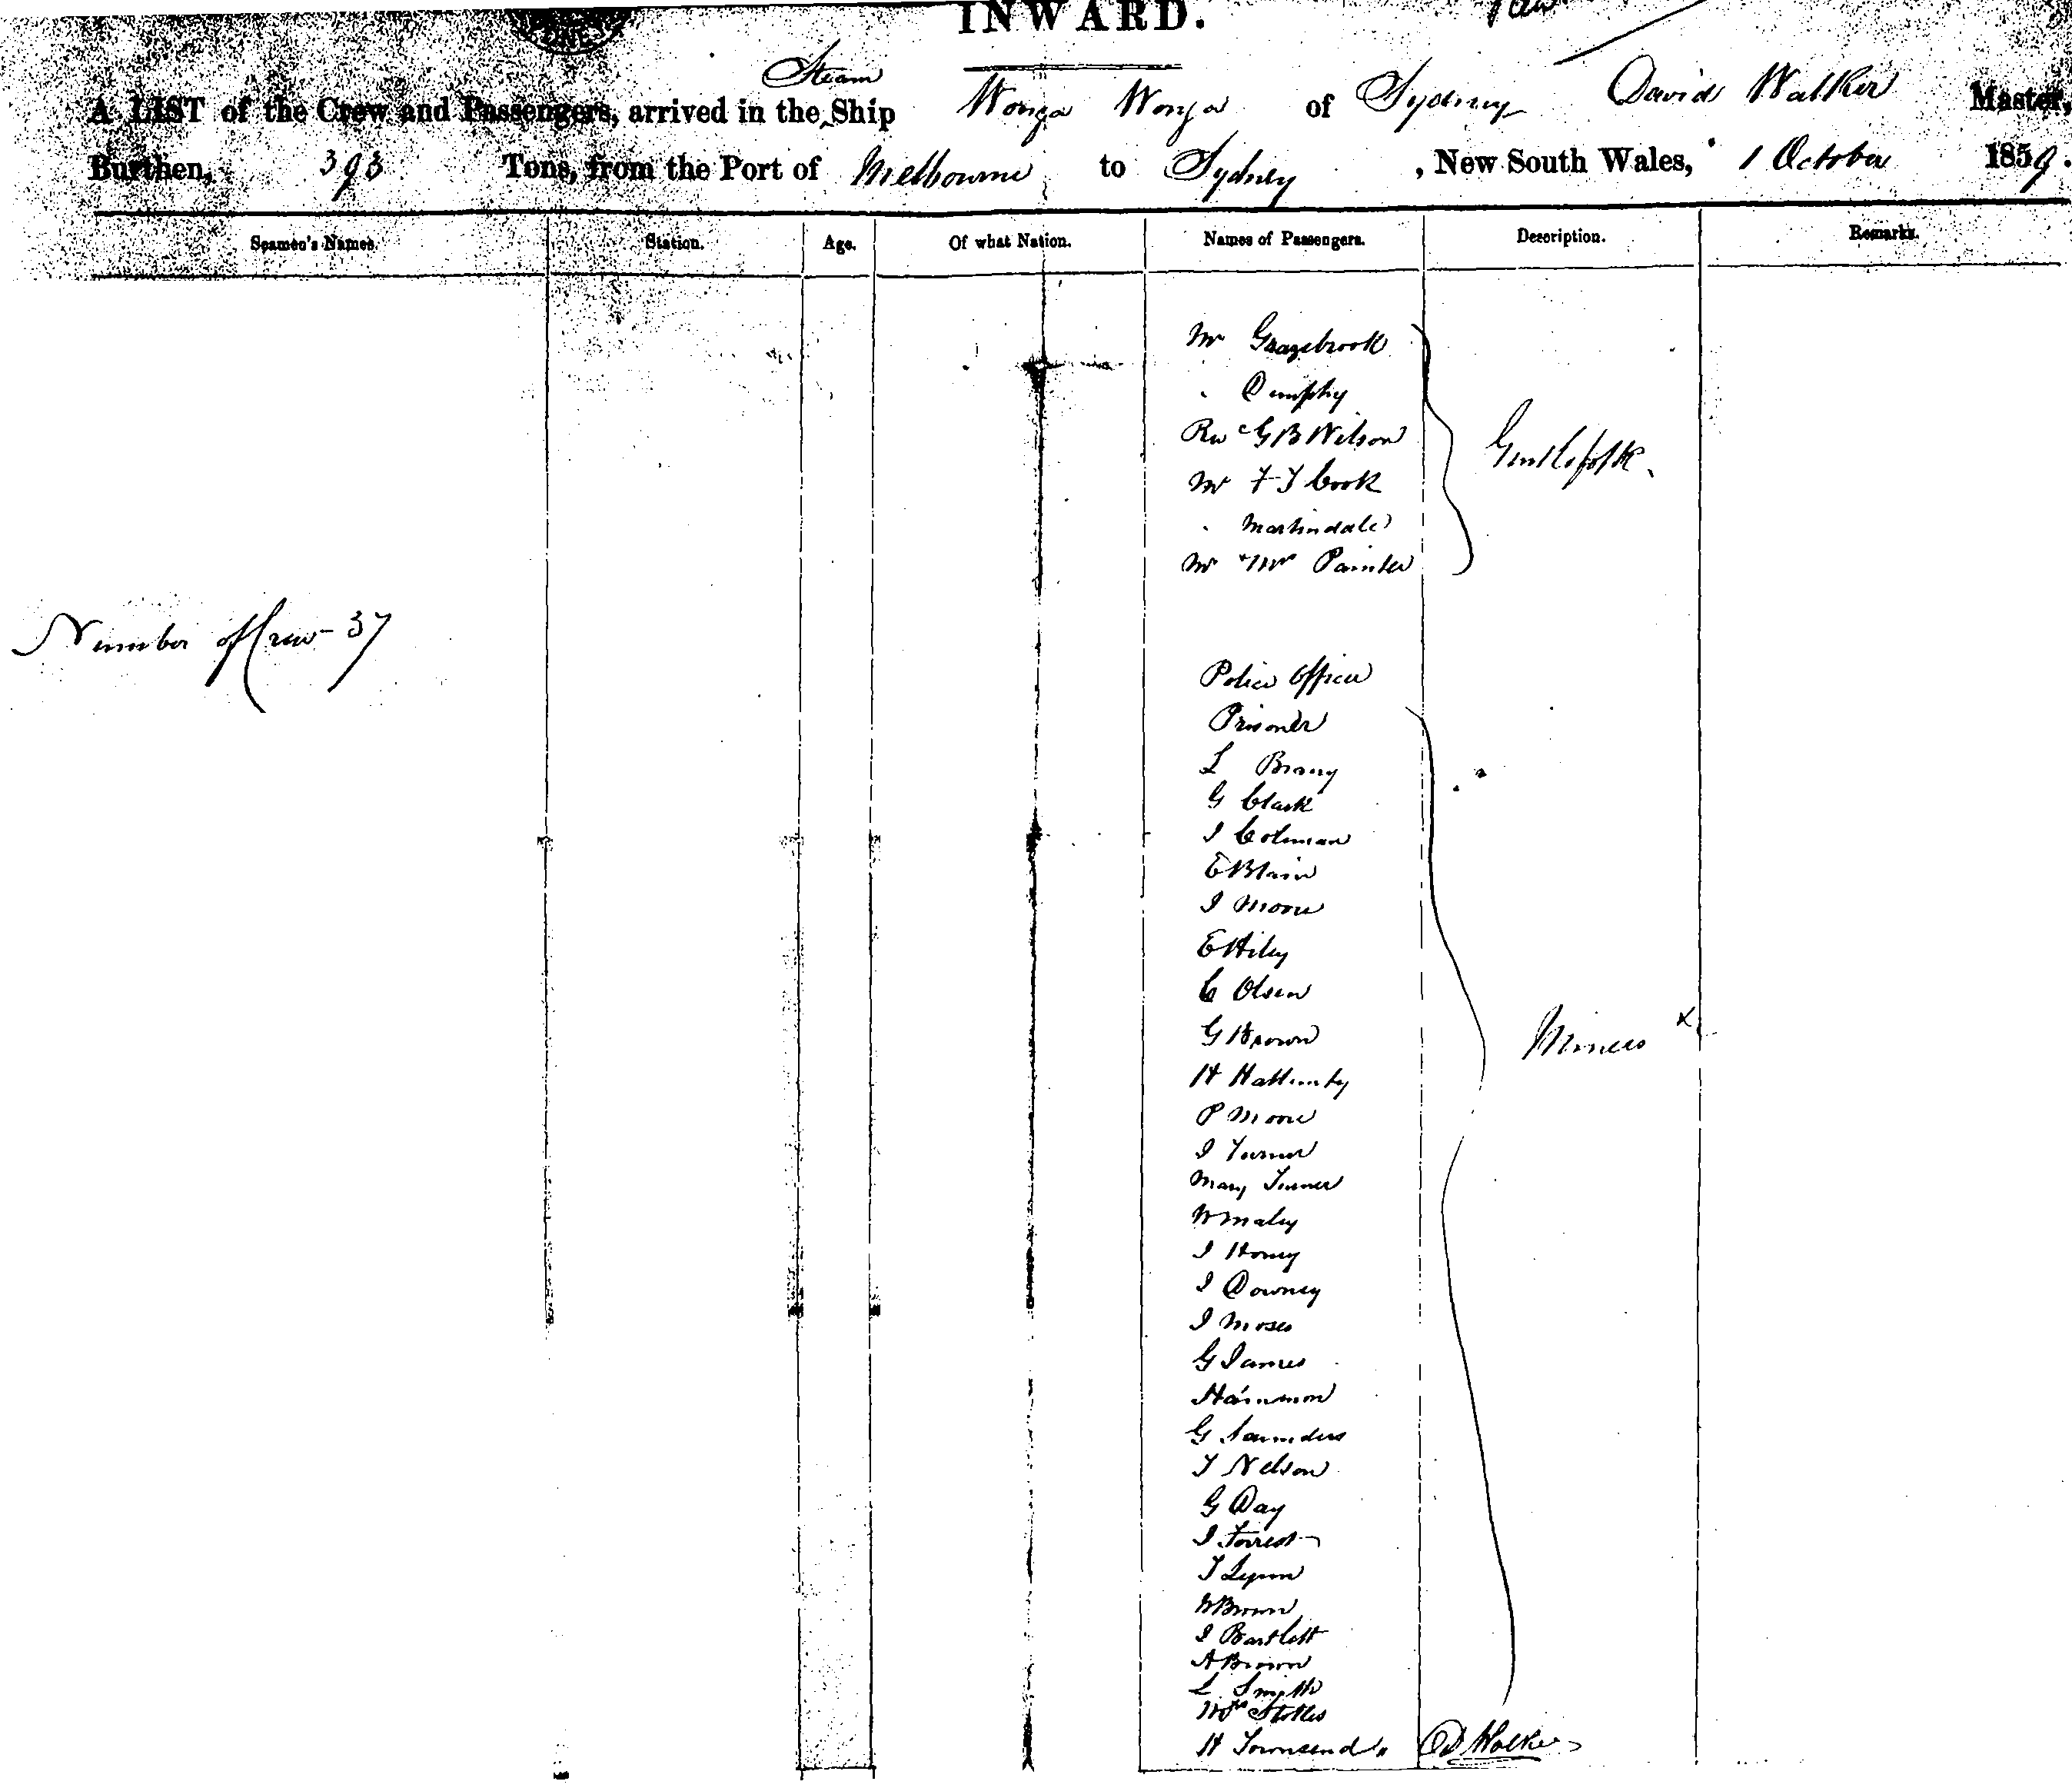 INWARD.
Steam
A LIST of the Crew and Passengers, arrived in the Ship Wonga Wonga of Sydney David Walker Master,
Burthen, 393 Tons, from the Port of Melbourne to Sydney, New South Wales, 1 October 1859.
Seamen's Names. Station. Age. Of what Nation. Names of Passengers. Description. Remarks.
Mr Grazebrook
" Dumphy
Revd G B Wilson
Mr F J Cook Gentlefolk.
" Martindale
Mr & Mrs Painter
Number of Crew - 37
Police Officer
Prisoner
L
G Clark
J Coleman
E Blain
J Moore
E Hiley
C Olsen
G Brown Miners x
H
P Moore
J Turner
Mary Turner
W Maley
J Honey
J Downey
J Moses
G James
G Saunders
T Nelson
G Day
J Forrest
T Lynn
W Brown
J Bartlett
A Brown
L Smith
Stokes
H Townsend " D Walker